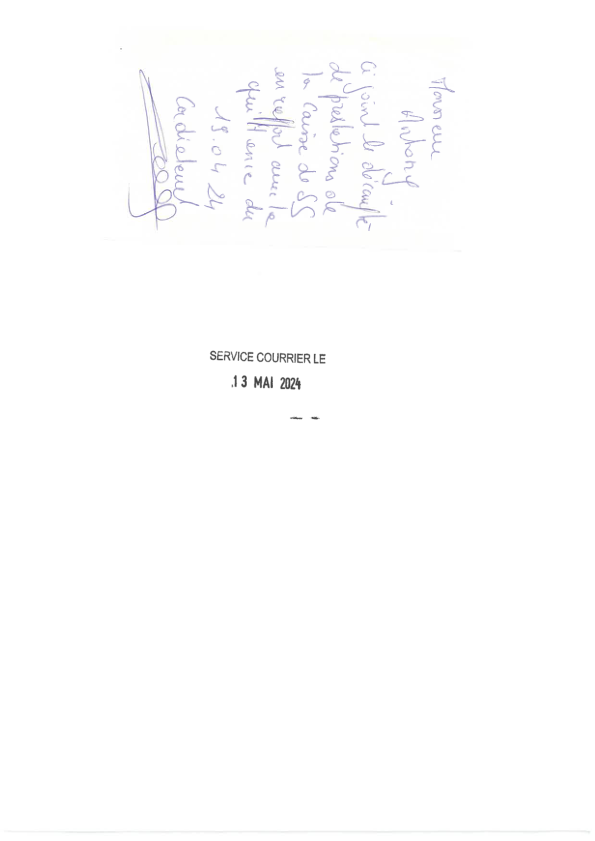 Monsieur
Antony
Ci joint le décompte
de prestations de
la Caisse de SS
en rapport avec la
quittance du
19.04.24
Cordialement
SERVICE COURRIER LE
13 MAI 2024